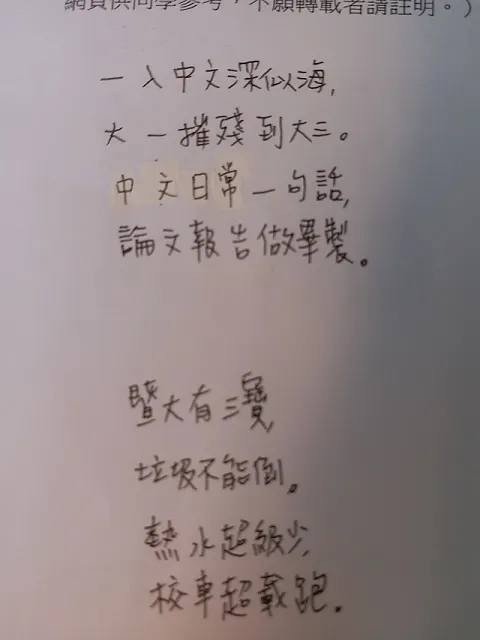 網頁供同學參考，不願轉載者請註明。）
一入中文深似海，
大一摧殘到大三。
中文日常一句話，
論文報告做畢製。
暨大有三寶，
垃圾不能倒。
熱水超級少，
校車超載跑。